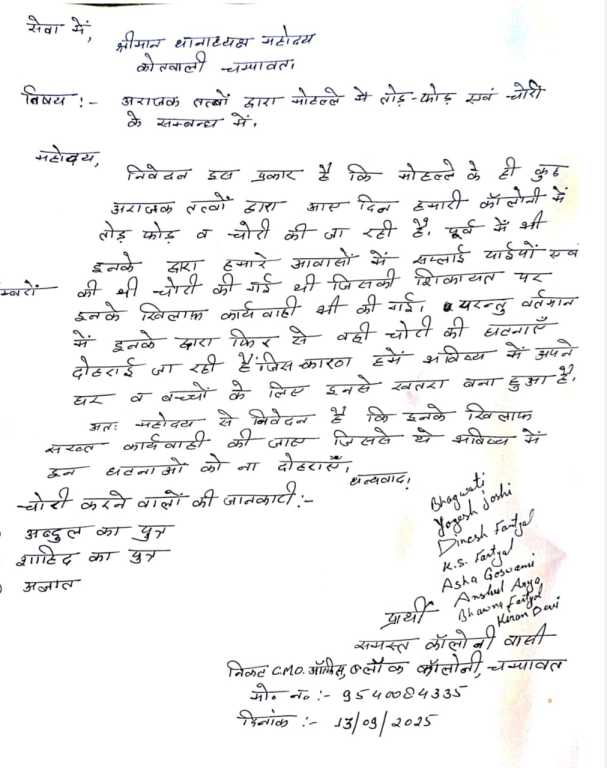 सेवा में,
श्रीमान थानाध्यक्ष महोदय
कोतवाली चम्पावत।
विषय :- अराजक तत्वों द्वारा मोहल्ले में तोड़-फोड़ एवं चोरी
के सम्बन्ध में।
महोदय,
निवेदन इस प्रकार है कि मोहल्ले के ही कुछ
अराजक तत्वों द्वारा आए दिन हमारी कॉलोनी में
तोड़ फोड़ व चोरी की जा रही है, पूर्व में भी
इनके द्वारा हमारे आवासों में सप्लाई पाईपों एवं
म्बरों की भी चोरी की गई थी जिसकी शिकायत पर
इनके खिलाफ कार्यवाही भी की गई, परन्तु वर्तमान
में इनके द्वारा फिर से वही चोरी की घटनाएँ
दोहराई जा रही हैं जिस कारण हमें भविष्य में अपने
घर व बच्चों के लिए इनसे खतरा बना हुआ है,
अतः महोदय से निवेदन है कि इनके खिलाफ
सख्त कार्यवाही की जाए जिससे ये भविष्य में
इन घटनाओं को ना दोहराएँ,
धन्यवाद।
चोरी करने वालों की जानकारी :-
अब्दुल का पुत्र
शाहिद का पुत्र
अज्ञात
Bhagwati
Yogesh Joshi
Dinesh Fartyal
K.S. Fartyal
Asha Goswami
Anshul Arya
Bhawna Fartyal
Kiran Devi
प्रार्थी
समस्त कॉलोनी वासी
निकट C.M.O. ऑफिस, ब्लॉक कॉलोनी, चम्पावत
मो० नं० :- 9540084335
दिनांक :- 13/09/2025